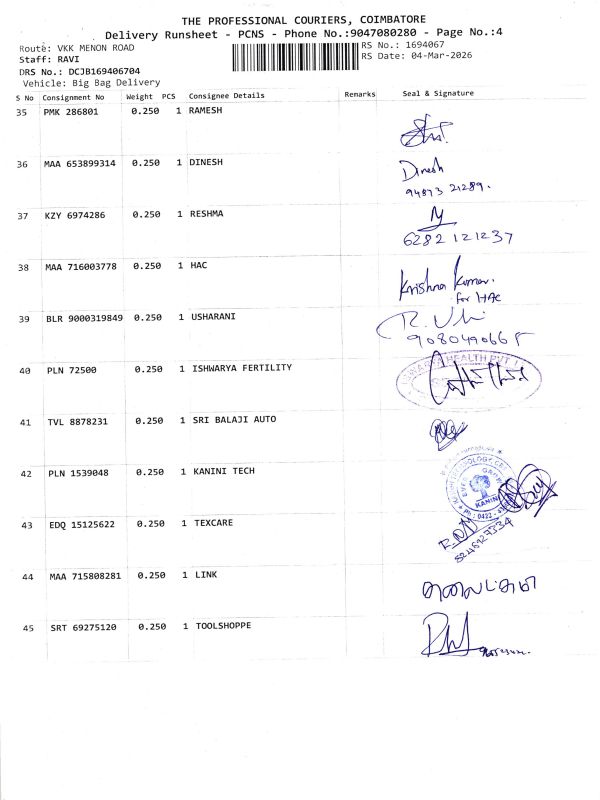 THE PROFESSIONAL COURIERS, COIMBATORE
Delivery Runsheet - PCNS - Phone No.:9047080280 - Page No.:4
Route: VKK MENON ROAD
RS No.: 1694067
Staff: RAVI
RS Date: 04-Mar-2026
DRS No.: DCJB169406704
Vehicle: Big Bag Delivery
S No Consignment No Weight PCS Consignee Details Remarks Seal & Signature
35 PMK 286801 0.250 1 RAMESH
36 MAA 653899314 0.250 1 DINESH Dinesh
94873 21289.
37 KZY 6974286 0.250 1 RESHMA
6282 121237
38 MAA 716003778 0.250 1 HAC Krishna Kumar.
for HAC
39 BLR 9000319849 0.250 1 USHARANI
9080490665
40 PLN 72500 0.250 1 ISHWARYA FERTILITY HEALTH PVT
41 TVL 8878231 0.250 1 SRI BALAJI AUTO
42 PLN 1539048 0.250 1 KANINI TECH
KANINI
43 EDQ 15125622 0.250 1 TEXCARE
44 MAA 715808281 0.250 1 LINK
45 SRT 69275120 0.250 1 TOOLSHOPPE